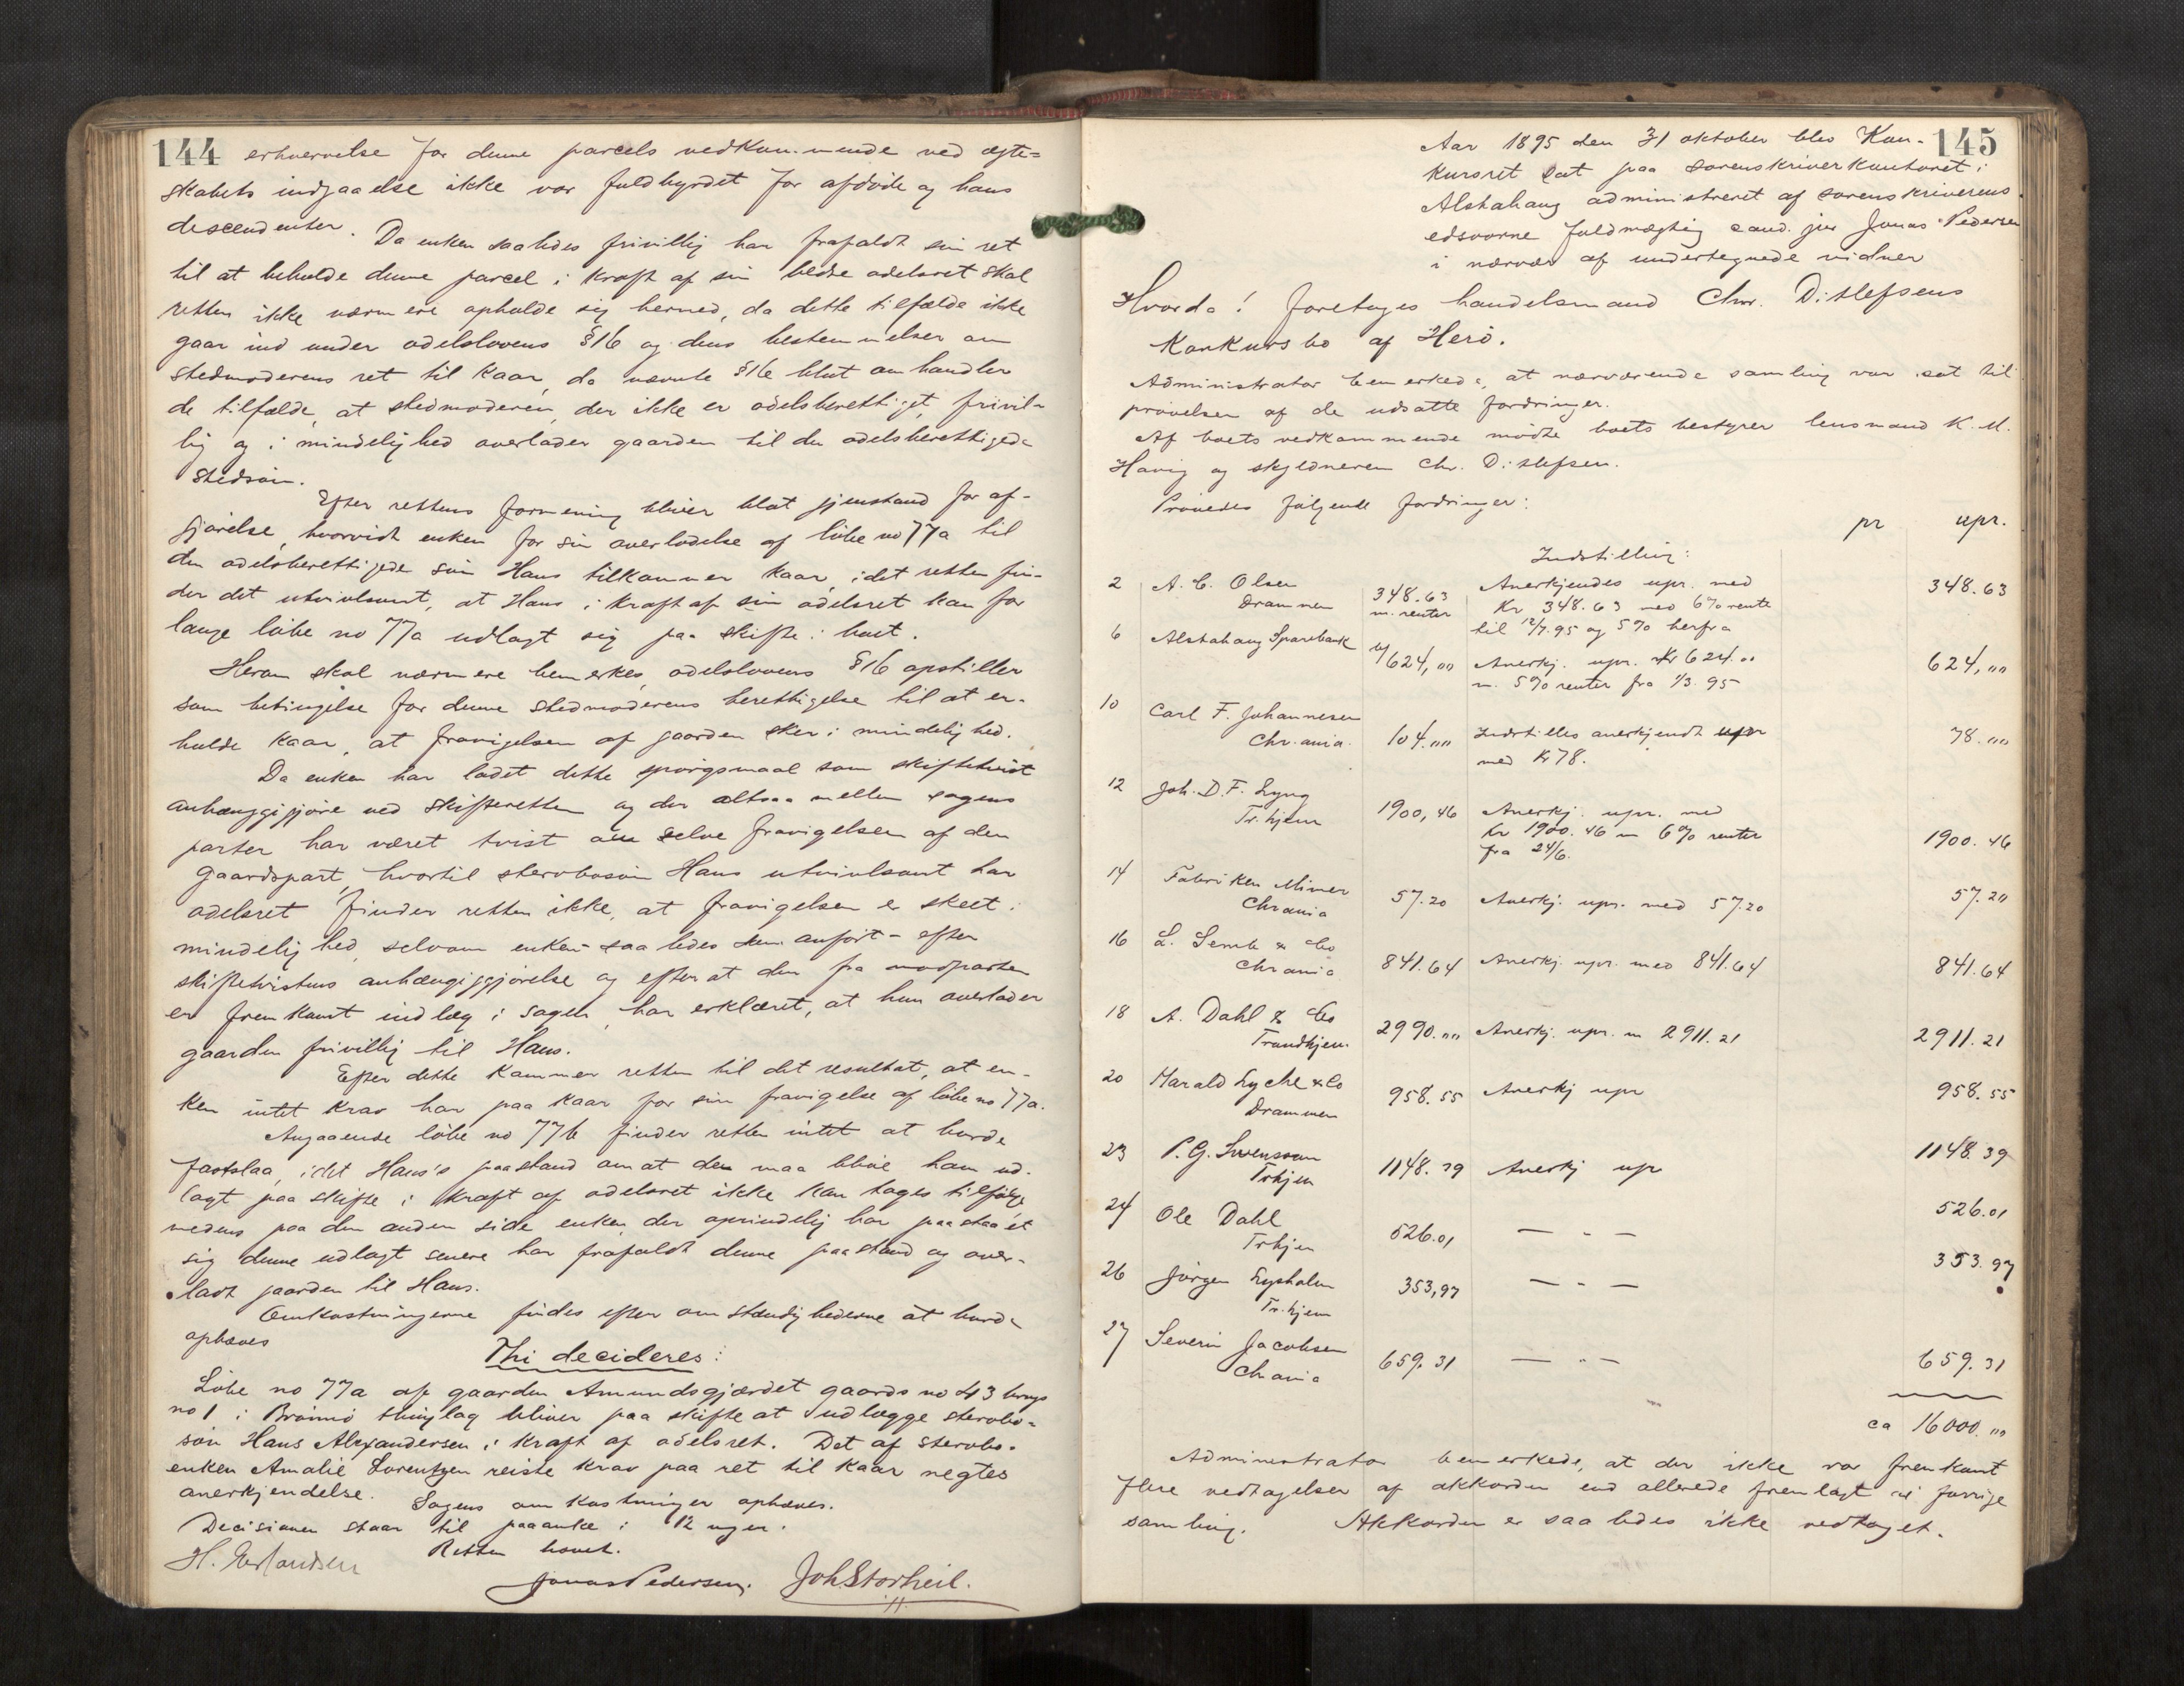 144
erhvervelse for denne parcels vedkommende ved ægte=
skabets indgaaelse ikke var fuldbyrdet for afdøde og hans
descendenter. Da enken saaledes frivillig har frafaldt sin ret
til at beholde denne parcel i kraft af sin bedre odelsret skal
retten ikke nærmere opholde sig herved, da dette tilfælde ikke
gaar ind under odelslovens §16 og dens bestemmelser om
stedmoderens ret til kaar, da nævnte §16 blot omhandler
de tilfælde, at stedmoderen, der ikke er odelsberettiget, frivil-
lig og i mindelighed overlader gaarden til den odelsberettigede
stedsøn.
Efter rettens formening bliver blot gjenstand for af-
gjørelse, hvorvidt enken for sin overladelse af løbe no 77a til
den odelsberettigede søn Hans tilkommer kaar, idet retten fin-
der det utvivlsomt, at Hans i kraft af sin odelsret kan for
lange løbe no 77a udlagt sig paa skifte i boet.
Herom skal nærmere bemerkes, odelslovens §16 opstiller
som betingelse for denne stedmoderens berettigelse til at er-
holde kaar, at fravigelsen af gaarden sker i mindelighed.
Da enken har ladet dette spørgsmaal som skiftetvist
anhænggiggjøre ved skifteretten og der altsaa mellem sagens
parter har været tvist om selve fravigelsen af den
gaardspart, hvortil stervbosøn Hans utvivlsomt har
odelsret finder retten ikke, at fravigelsen er skeet i
mindelighed, selvom enken - saaledes som anført - efter
skiftetvistens anhængiggjørelse og efter at den fra modparten
er fremkomt indlæg i sagen, har erklæret, at hun overlader
gaarden frivillig til Hans.
Efter dette kommer retten til det resultat, at en-
ken intet krav har paa kaar for sin fravigelse af løbe no 77a.
Angaaende løbe no 77b finder retten intet at burde
fastslaa, idet Hans's paastand om at den maa blive ham ud-
lagt paa skifte i kraft af odelsret ikke kan tages tilfølge
medens paa den anden side enken, der oprindelig har paastaaet
sig denne udlagt senere har frafaldt denne paastand og over-
ladt gaarden til Hans.
Omkostningerne findes efter omstændighederne at burde
ophæves
Thi decideres:
Løbe no 77a af gaarden Amundsgjærdet gaards no 43 brugs
no 1 i Brønnø thinglag bliver paa skifte at udlægge stervbo-
søn Hans Alexandersen i kraft af odelsret. Det af stervbo-
enken Amalie Lorentzen reiste krav paa ret til kaar negtes
anerkjendelse. Sagens omkostninger ophæves.
Decisionen staar til paaanke i 12 uger.
Retten hævet.
H. Erlandsen
Jonas Pedersen. Joh Storheil.
145
Aar 1895 den 31 oktober blev Kon-
kursret sat paa sorenskriverkontoret i
Alstahaug administreret af sorenskriverens
edsvorne fuldmægtig cand. jur Jonas Pedersen
i nærvær af undertegnede vidner
Hvorda! foretoges handelsmand Chr. Ditlefsens
Konkursbo af Herø.
Administrator bemerkede, at nærværende samling var sat til
prøvelsen af de udsatte fordringer.
Af boets vedkommende mødte boets bestyrer lensmand K. M.
Havig og skyldneren Chr. Ditlefsen.
Prøvedes følgende fordringer:
pr upr.
Indstilling:
2 A. C. Olsen 348.63 Anerkjendes upr. med 348.63
Drammen m. renter Kr 348.63 med 6% rente
til 12/7.95 og 5% herfra
6 Alstahaug Sparebank 624,00 Anerkj. upr. Kr 624.00 624,00
m. 5% renter fra 1/3.95
10 Carl F. Johannesen
Chr.ania 104.00 Indstilles anerkjendt upr 78.00
med Kr 78.
12 Joh. D. F. Lyng
Tr.hjem 1900,46 Anerkj. upr. med
Kr 1900.46 m 6% renter 1900.46
fra 24/6.
14 Fabriken Mimer
Chrania 57.20 Anerkj. upr. med 57.20 57.20
16 L. Semb & Co
Chrania 841.64 Anerkj. upr. med 841.64 841.64
18 A. Dahl & Co
Trondhjem 2990.00 Anerkj. upr. m 2911.21 2911.21
20 Harald Lyche & Co
Drammen 958.55 Anerkj upr 958.55
23 P. G. Svensson
Trhjem 1148.39 Anerkj upr 1148.39
24 Ole Dahl
Trhjem 526.01 — " — 526.01
26 Jørgen Lysholm 353,97 — " — 353.97
Tr.hjem
27 Severin Jacobsen
Chrania 659.31 — " — 659.31
ca 16000.00
Administrator bemerkede, at der ikke var fremkomt
flere vedtagelser af akkorden end allerede fremlagt i forrige
samling. Akkorden er saaledes ikke vedtaget.